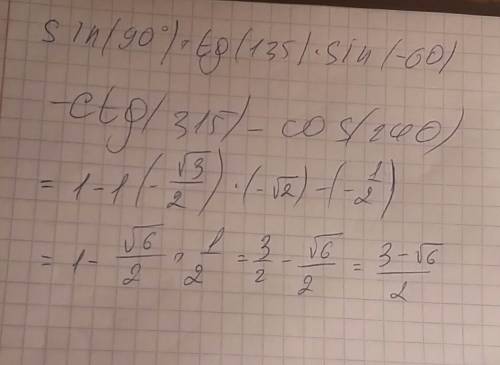 sin(90°)·tg(135)·sin(-60)
-ctg(315)-cos(240)
= 1-1(-√3/2)·(-√2)-(-1/2)
= 1-√6/2+1/2=3/2-√6/2=(3-√6)/2